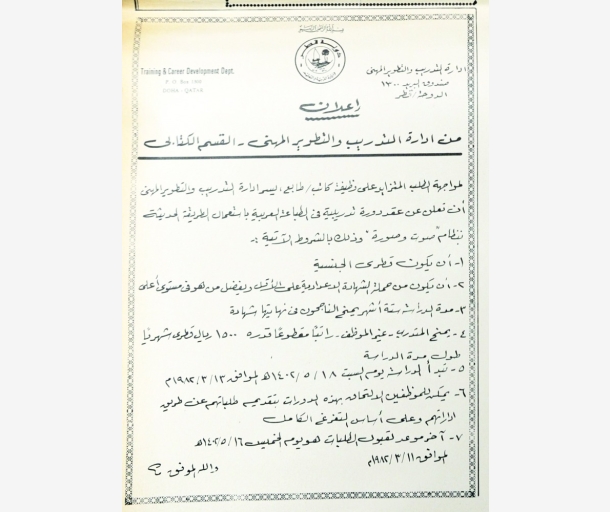 دولة قطر
Training & Career Development Dept.
P. O. Box 1300
DOHA - QATAR
إدارة التدريب والتطوير المهني
صندوق بريد ١٣٠٠
الدوحة / قطر
إعلان
من ادارة التدريب والتطوير المهني - القسم الكتابي
لمواجهة الطلب المتزايد على وظيفة كاتب / طابع ليسر ادارة التدريب والتطوير المهني
أن تعلن عن عقد دورة تدريبية في الطباعة العربية باستعمال الطريقة الحديثة
بنظام "صوت وصورة" وذلك بالشروط الآتية :-
١- أن يكون قطري الجنسية
٢- أن يكون من حملة الشهادة الاعدادية على الأقل ويفضل من هو في مستوى أعلى
٣- مدة الدراسة ستة أشهر يمنح الناجحون في نهايتها شهادة
٤- يمنح المتدرب - غير الموظف - راتبًا مقطوعًا قدره ١٥٠٠ ريال قطري شهريًا
طول مدة الدراسة
٥- تبدأ الدراسة يوم السبت ١٨ / ٥ / ١٤٠٢هـ الموافق ١٣ / ٣ / ١٩٨٢م
٦- يمكن للموظفين الالتحاق بهذه الدورات بتقديم طلباتهم عن طريق
اداراتهم وعلى أساس التفرغ الكامل
٧- آخر موعد لقبول الطلبات هو يوم الخميس ١٦ / ٥ / ١٤٠٢هـ
الموافق ١١ / ٣ / ١٩٨٢م
والله الموفق